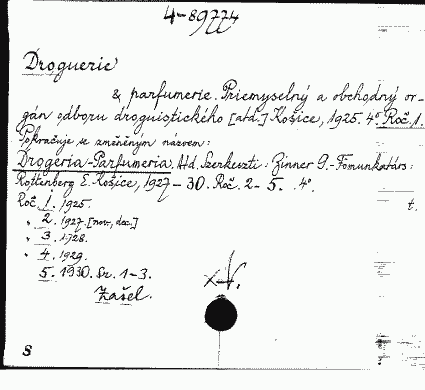 4-89774
Droguerie
& parfumerie. Priemyselný a obchodný or-
gán odboru droguistického [atd.] Košice, 1925. 4° Roč. 1.
Pokračuje se změněným názvem:
Drogeria-Parfumeria. Htd. Szerkeszti: Zinner G.-Fömunkatárs:
Rottenberg E. Košice, 1927-30. Roč. 2-5. 4°.
Roč. 1. 1925. t.
" 2. 1927. [nov., dec.]
" 3. 1928.
" 4. 1929.
5. 1930. Sv. 1-3.
Zašel.
S